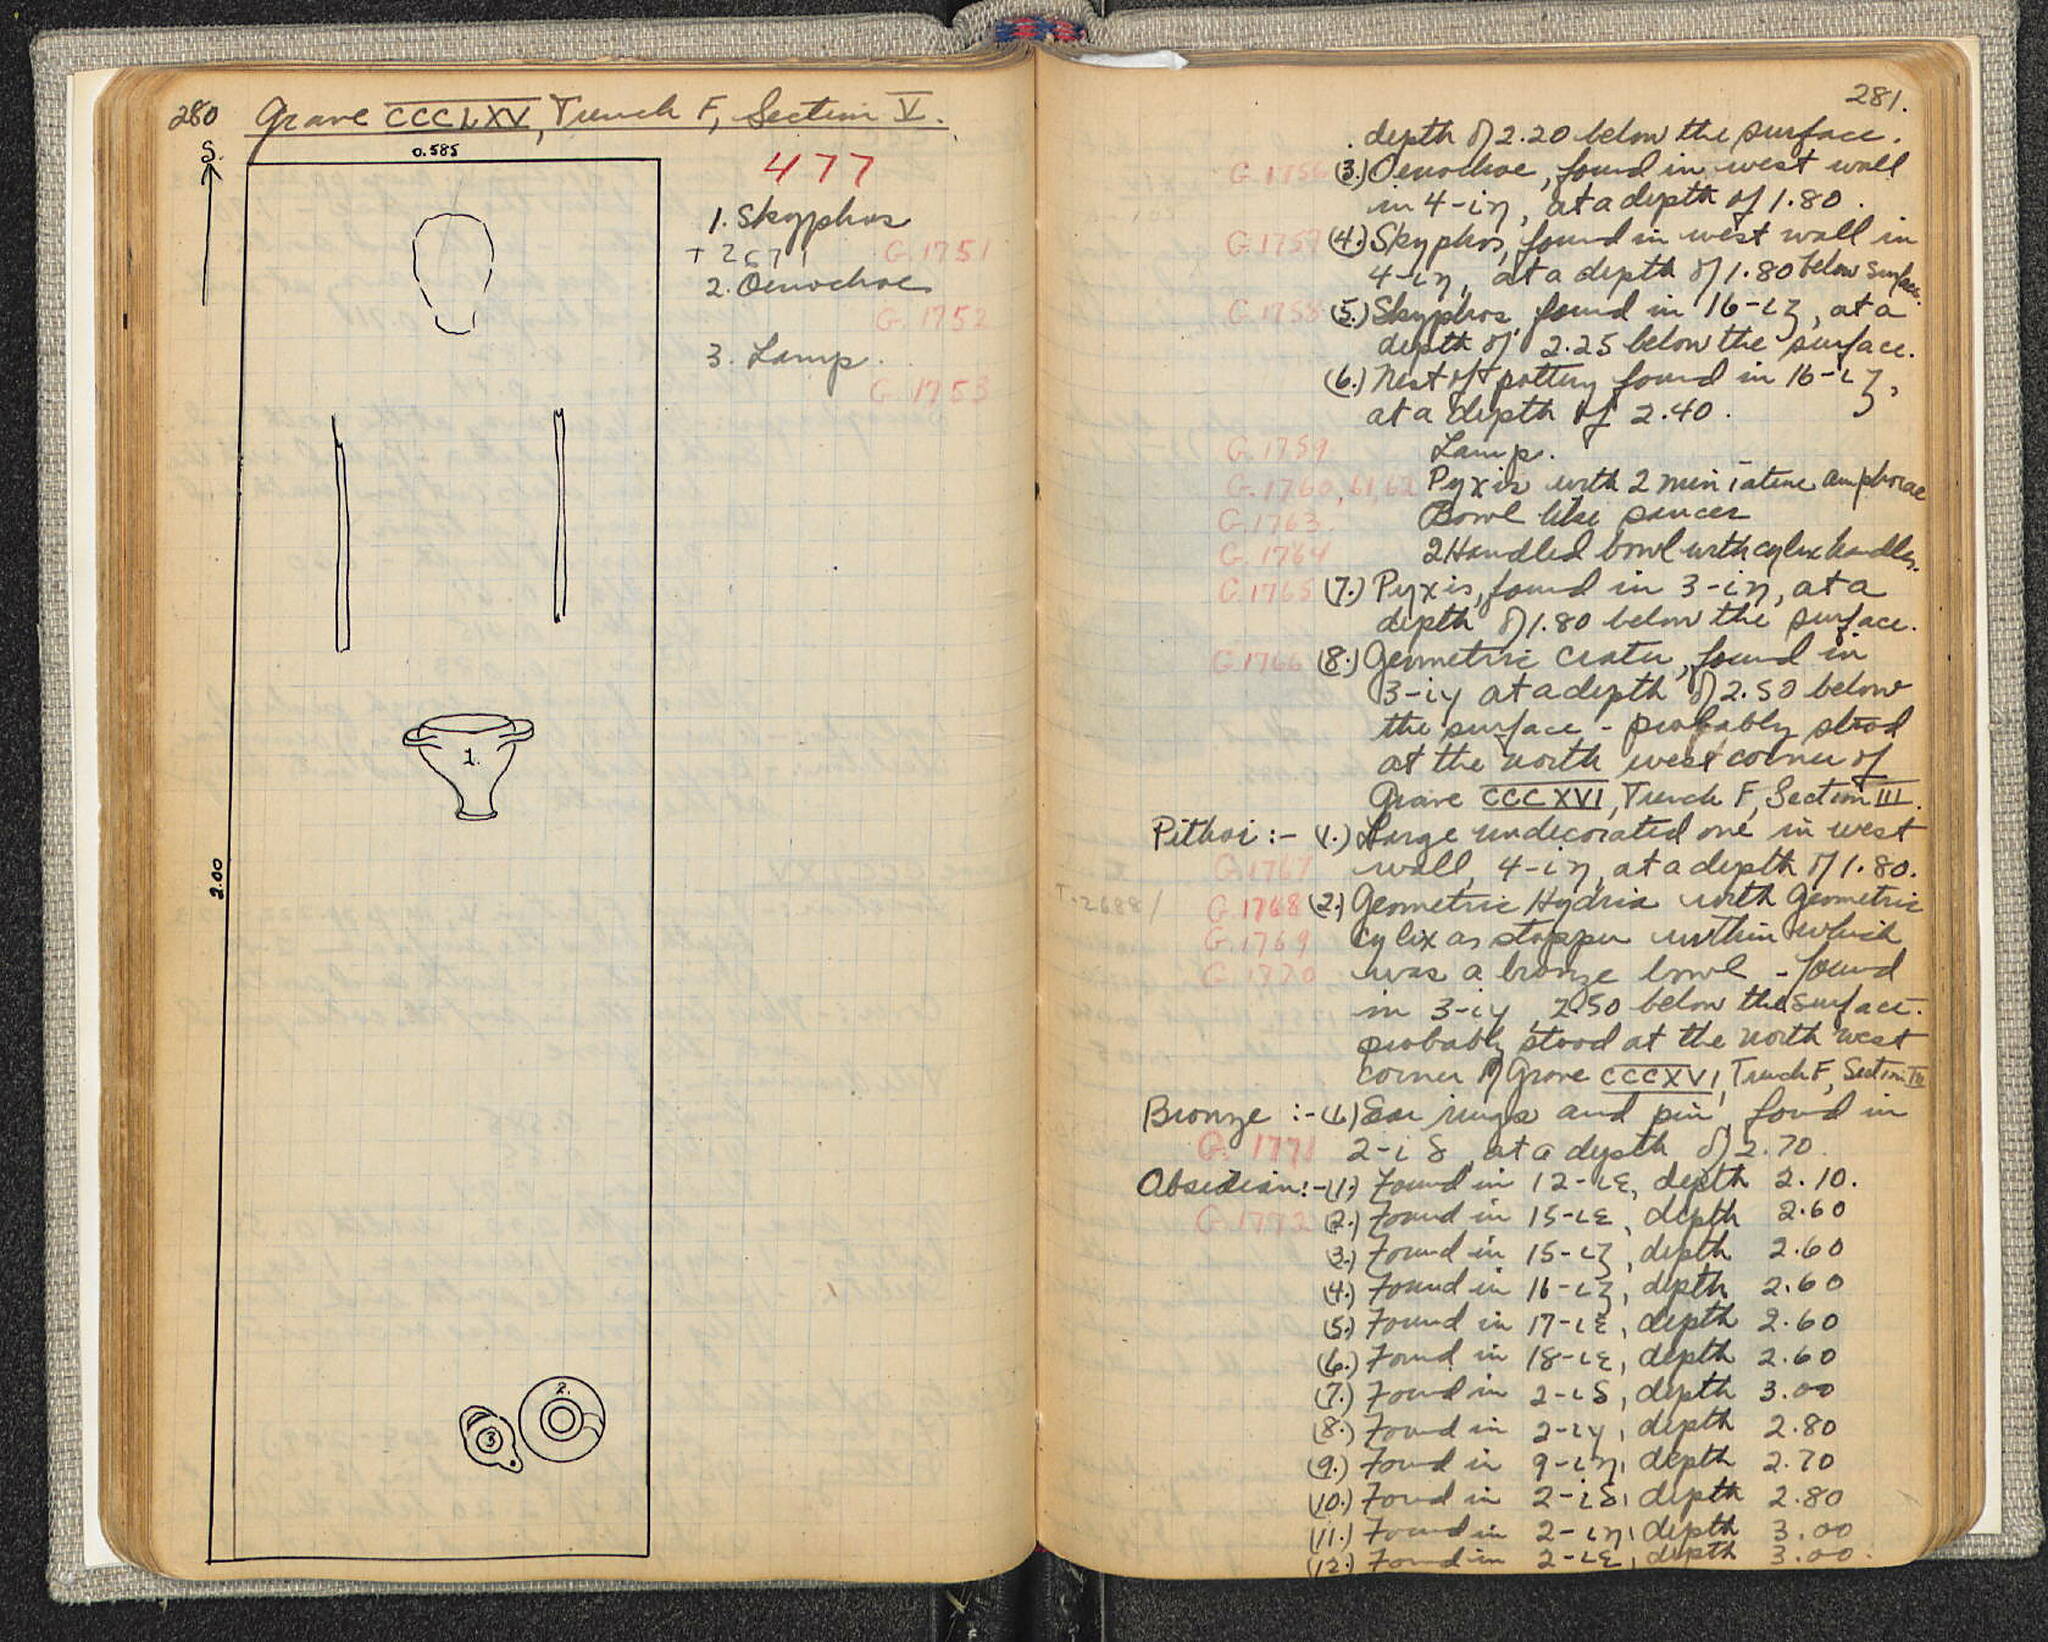 280 Grave CCCLXV, Trench F, Section V.
S.
0.585
477
1. Skyphos
T 2671 G.1751
2. Oenochoe
G.1752
3. Lamp.
G.1753
1.
2.00
2.
3
281.
depth of 2.20 below the surface.
G.1756 (3.) Oenochoe, found in west wall
in 4-ιη, at a depth of 1.80.
G.1757 (4.) Skyphos, found in west wall in
4-ιη, at a depth of 1.80 below surface.
G.1758 (5.) Skyphos found in 16-ιζ, at a
depth of 2.25 below the surface.
(6.) Nest of pottery found in 16-ιζ,
at a depth of 2.40.
G.1759 Lamp.
G.1760, 61, 62 Pyxis with 2 miniature amphorae
G.1763. Bowl like saucer
G.1764 2 Handled bowl with cylix handles.
G.1765 (7.) Pyxis, found in 3-ιη, at a
depth of 1.80 below the surface.
G.1766 (8.) Geometric Crater, found in
3-ιγ at a depth of 2.50 below
the surface - probably stood
at the north west corner of
Grave CCCXVI, Trench F, Section III.
Pithoi :- (1.) Large undecorated one in west
G.1767 wall, 4-ιη, at a depth of 1.80.
T.2688/ G.1768 (2.) Geometric Hydria with Geometric
G.1769 cylix as stopper within which
G.1770 was a bronze bowl - found
in 3-ιγ, 2.50 below the surface.
probably stood at the north west
corner of Grave CCCXVI, Trench F, Section III
Bronze :- (1.) Ear rings and pin, found in
G.1771 2-ιδ, at a depth of 2.70.
Obsidian :- (1.) Found in 12-ιε, depth 2.10.
G.1772 (2.) Found in 15-ιε, depth 2.60
(3.) Found in 15-ιζ, depth 2.60
(4.) Found in 16-ιζ, depth 2.60
(5.) Found in 17-ιε, depth 2.60
(6.) Found in 18-ιε, depth 2.60
(7.) Found in 2-ιδ, depth 3.00
(8.) Found in 2-ιγ, depth 2.80
(9.) Found in 9-ιη, depth 2.70
(10.) Found in 2-ιδ, depth 2.80
(11.) Found in 2-ιη, depth 3.00
(12.) Found in 2-ιε, depth 3.00.